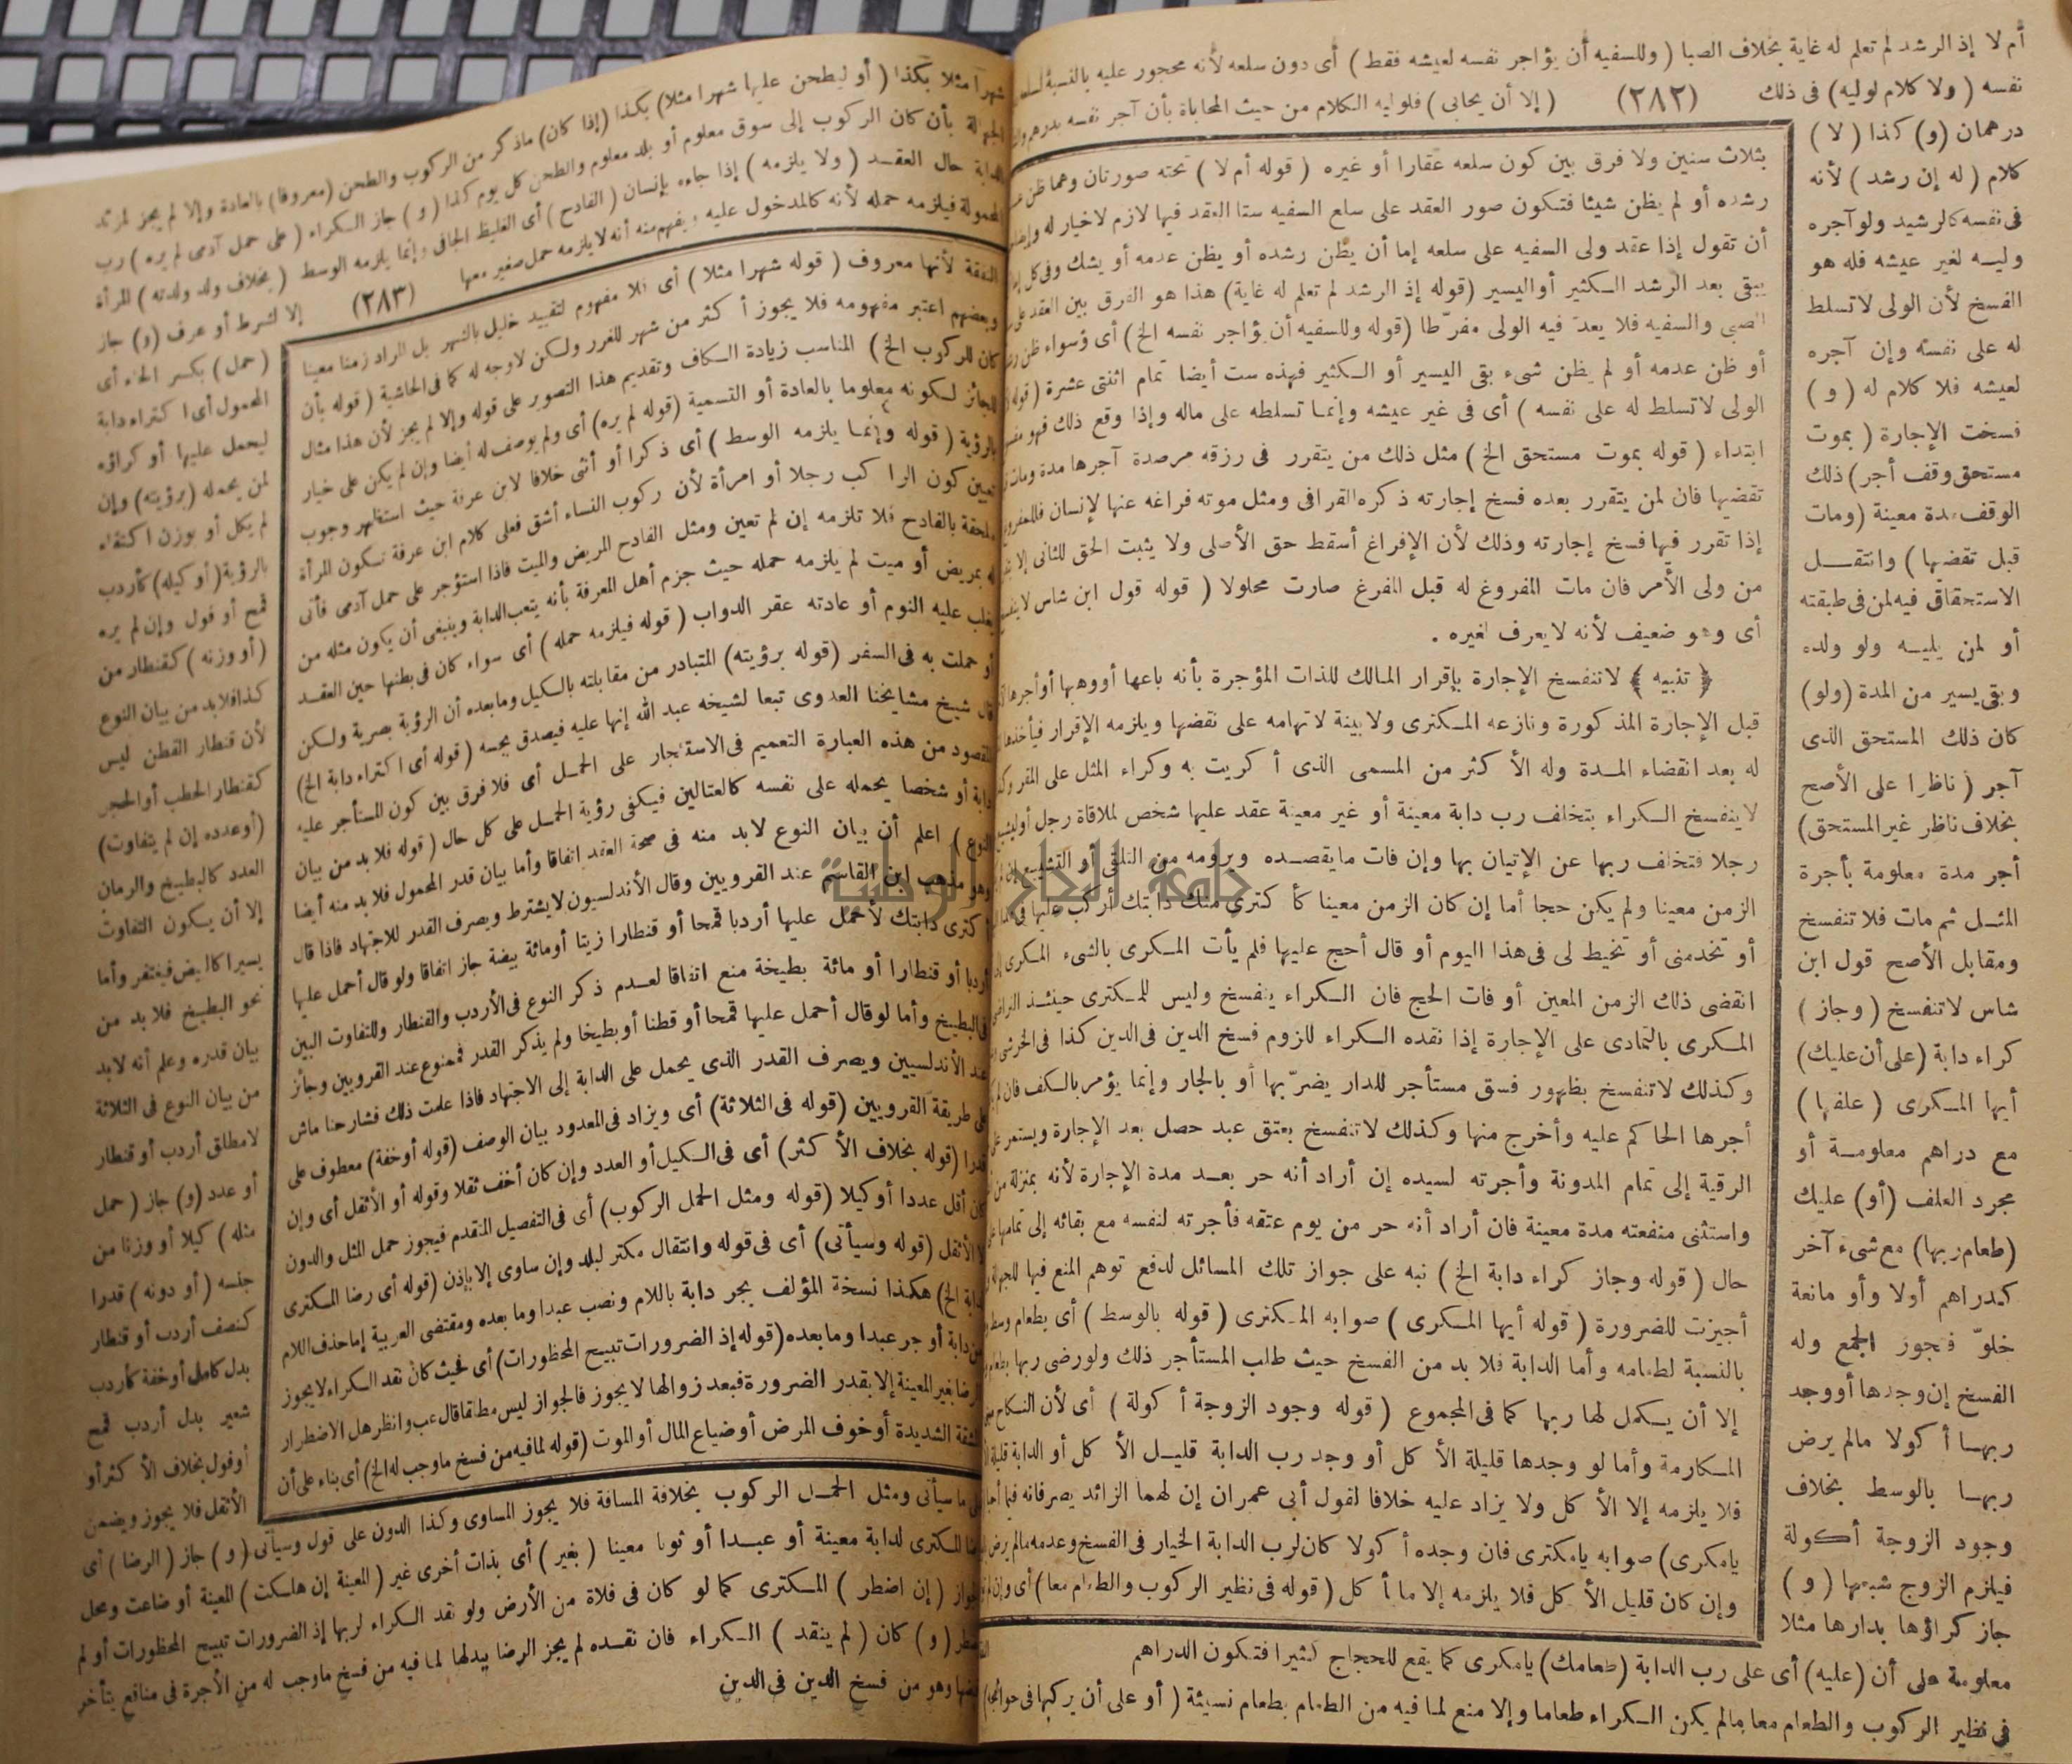 أم لا إذ الرشد لم تعلم له غاية بخلاف الصبا (وللسفيه أن يؤاجر نفسه لعيشه فقط) أى دون سلعه لأنه محجور عليه بالنسبة
نفسه (ولا كلام لوليه) فى ذلك (٢٨٢) (إلا أن يحابى) فلوليه الكلام من حيث المحاباة بأن آجر نفسه بدرهم
درهمان (و) كذا (لا)
كلام (له إن رشد) لأنه
فى نفسه كالرشيد ولو آجره
وليه لغير عيشه فله هو
الفسخ لأن الولى لا تسلط
له على نفسه وإن آجره
لعيشه فلا كلام له (و)
فسخت الإجارة (بموت
مستحق وقف أجر) ذلك
الوقف مدة معينة (ومات
قبل تقضيها) وانتقل
الاستحقاق فيه لمن فى طبقته
أو لمن يليه ولو ولده
وبقى يسير من المدة (ولو)
كان ذلك المستحق الذى
آجر (ناظرا على الأصح
بخلاف ناظر غير المستحق)
أجر مدة معلومة بأجرة
المثل ثم مات فلا تنفسخ
ومقابل الأصح قول ابن
شاس لا تنفسخ (وجاز)
كراء دابة (على أن عليك)
أيها المكرى (علفها)
مع دراهم معلومة أو
مجرد العلف (أو) عليك
(طعام ربها) مع شىء آخر
كدراهم أولا وأو مانعة
خلوّ فتجوز الجمع وله
الفسخ إن وجدها أو وجد
ربها أكولا مالم يرض
ربها بالوسط بخلاف
وجود الزوجة أكولة
فيلزم الزوج شبعها (و)
جاز كراؤها بدارها مثلا
بثلاث سنين ولا فرق بين كون سلعه عقارا أو غيره (قوله أم لا) تحته صورتان وهما ظن
رشده أو لم يظن شيئا فتكون صور العقد على سلع السفيه ستا العقد فيها لازم لا خيار له
أن تقول إذا عقد ولى السفيه على سلعه إما أن يظن رشده أو يظن عدمه أو يشك وفى كل
يبقى بعد الرشد الكثير أو اليسير (قوله إذ الرشد لم تعلم له غاية) هذا هو الفرق بين العقد على
الصبى والسفيه فلا يعدّ فيه الولى مفرّطا (قوله وللسفيه أن يؤاجر نفسه الخ) أى وسواء ظن
أو ظن عدمه أو لم يظن شىء بقى اليسير أو الكثير فهذه ست أيضا تمام اثنتى عشرة
الولى لا تسلط له على نفسه) أى فى غير عيشه وإنما تسلطه على ماله وإذا وقع ذلك فهو
ابتداء (قوله بموت مستحق الخ) مثل ذلك من يتقرر فى رزقه مرصدة آجرها مدة ومات
تقضيها فان لمن يتقرر بعده فسخ إجارته ذكره القرافى ومثل موته فراغه عنها لإنسان
إذا تقرر فيها فسخ إجارته وذلك لأن الإفراغ أسقط حق الأصلى ولا يثبت الحق للثانى إلا
من ولى الأمر فان مات المفروغ له قبل المفرغ صارت محلولا (قوله قول ابن شاس
أى وهو ضعيف لأنه لا يعرف لغيره.
﴿تنبيه﴾ لا تنفسخ الإجارة بإقرار المالك للذات المؤجرة بأنه باعها أو وهبها أو أجرها
قبل الإجارة المذكورة ونازعه المكترى ولا بينة لاتهامه على نقضها ويلزمه الإقرار
له بعد انقضاء المدة وله الأكثر من المسمى الذى أكريت به وكراء المثل على المقر
لا ينفسخ الكراء بتخلف رب دابة معينة أو غير معينة عقد عليها شخص لملاقاة رجل
رجلا فتخلف ربها عن الإتيان بها وإن فات ما يقصده ويرومه من التلقى أو التشييع
الزمن معينا ولم يكن حجا أما إن كان الزمن معينا كأكترى منك دابتك أركب عليها
أو تخدمنى أو تخيط لى فى هذا اليوم أو قال أحج عليها فلم يأت المكرى بالشىء المكرى
انقضى ذلك الزمن المعين أو فات الحج فان الكراء ينفسخ وليس للمكترى حينئذ
المكرى بالتمادى على الإجارة إذا نقده الكراء للزوم فسخ الدين فى الدين كذا فى الخرشى
وكذلك لا تنفسخ بظهور فسق مستأجر للدار يضرّ بها أو بالجار وإنما يؤمر بالكف
أجرها الحاكم عليه وأخرج منها وكذلك لا تنفسخ بعتق عبد حصل بعد الإجارة ويستمر
الرقية إلى تمام المدونة وأجرته لسيده إن أراد أنه حر بعد مدة الإجارة لأنه بمنزلة
واستثنى منفعته مدة معينة فان أراد أنه حر من يوم عتقه فأجرته لنفسه مع بقائه إلى تمامها
حال (قوله وجاز كراء دابة الخ) نبه على جواز تلك المسائل لدفع توهم المنع فيها
أجيزت للضرورة (قوله أيها المكرى) صوابه المكترى (قوله بالوسط) أى بطعام
بالنسبة لطعامه وأما الدابة فلا بد من الفسخ حيث طلب المستأجر ذلك ولو رضى ربها
إلا أن يكمل لها ربها كما فى المجموع (قوله وجود الزوجة أكولة) أى لأن النكاح
المكارمة وأما لو وجدها قليلة الأكل أو وجد رب الدابة قليل الأكل أو الدابة
فلا يلزمه إلا الأكل ولا يزاد عليه خلافا لقول أبى عمران إن لهما الزائد يصرفانه
يامكرى) صوابه يامكترى فان وجده أكولا كان لرب الدابة الخيار فى الفسخ وعدمه
وإن كان قليل الأكل فلا يلزمه إلا ما أكل (قوله فى نظير الركوب والطعام معا) أى
معلومة على أن (عليه) أى على رب الدابة (طعامك) يامكرى كما يقع للحجاج كثيرا فتكون الدراهم
فى نظير الركوب والطعام معا مالم يكن الكراء طعاما وإلا منع لما فيه من الطعام بطعام نسيئة (أو على أن يركبها فى
شهرا مثلا بكذا (أو ليطحن عليها شهرا مثلا) بكذا (إذا كان) ماذكر من الركوب والطحن (معروفا) بالعادة وإلا لم يجز
بأن كان الركوب إلى سوق معلوم أو بلد معلوم والطحن كل يوم كذا (و) جاز الكراء (على حمل آدمى لم يره) رب
الدابة حال العقد (ولا يلزمه) إذا جاءه بإنسان (الفادح) أى الغليظ الجافى وإنما يلزمه الوسط (بخلاف ولد ولدته) المرأة
المحمولة فيلزمه حمله لأنه كالمدخول عليه ويفهم منه أنه لا يلزمه حمل صغير معها (٢٨٣) إلا لشرط أو عرف (و) جاز
(حمل) بكسر الحاء أى
المحمول أى اكتراء دابة
ليحمل عليها أو كراؤه
لمن يحمله (برؤيته) وإن
لم يكل أو يوزن اكتفاء
بالرؤية (أو كيله) كأردب
قمح أو فول وإن لم يره
(أو وزنه) كقنطار من
كذا فلا بد من بيان النوع
لأن قنطار القطن ليس
كقنطار الحطب أو الحجر
(أو عدده إن لم يتفاوت)
العدد كالبطيخ والرمان
إلا أن يكون التفاوت
يسيرا كالبيض فيغتفر وأما
نحو البطيخ فلا بد من
بيان قدره وعلم أنه لا بد
من بيان النوع فى الثلاثة
لا مطلق أردب أو قنطار
أو عدد (و) جاز (حمل
مثله) كيلا أو وزنا من
جنسه (أو دونه) قدرا
كنصف أردب أو قنطار
بدل كامل أو خفة كأردب
شعير بدل أردب قمح
أو فول بخلاف الأكثر أو
الأثقل فلا يجوز ويضمن
النفقة لأنها معروف (قوله شهرا مثلا) أى فلا مفهوم لتقييد خليل بالشهر بل المراد زمنا معينا
وبعضهم اعتبر مفهومه فلا يجوز أكثر من شهر للغرر ولكن لا وجه له كما فى الحاشية (قوله بأن
كان للركوب الخ) المناسب زيادة الكاف وتقديم هذا التصوير على قوله وإلا لم يجز لأن هذا مثال
للجائز لكونه معلوما بالعادة أو التسمية (قوله لم يره) أى ولم يوصف له أيضا وإن لم يكن على خيار
بالرؤية (قوله وإنما يلزمه الوسط) أى ذكرا أو أنثى خلافا لابن عرفة حيث استظهر وجوب
تعيين كون الراكب رجلا أو امرأة لأن ركوب النساء أشق فعلى كلام ابن عرفة تكون المرأة
ملحقة بالفادح فلا تلزمه إن لم تعين ومثل الفادح المريض والميت فاذا استؤجر على حمل آدمى فأتى
له بمريض أو ميت لم يلزمه حمله حيث جزم أهل المعرفة بأنه يتعب الدابة وينبغى أن يكون مثله من
يغلب عليه النوم أو عادته عقر الدواب (قوله فيلزمه حمله) أى سواء كان فى بطنها حين العقد
أو حملت به فى السفر (قوله برؤيته) المتبادر من مقابلته بالكيل وما بعده أن الرؤية بصرية ولكن
قال شيخ مشايخنا العدوى تبعا لشيخه عبد الله إنها علية فيصدق بجسه (قوله أى اكتراء دابة الخ)
المقصود من هذه العبارة التعميم فى الاستئجار على الحمل أى فلا فرق بين كون المستأجر عليه
دابة أو شخصا يحمله على نفسه كالعتالين فيكفى رؤية الحمل على كل حال (قوله فلا بد من بيان
النوع) اعلم أن بيان النوع لا بد منه فى صحة العقد اتفاقا وأما بيان قدر المحمول فلا بد منه أيضا
وهو مذهب ابن القاسم عند القرويين وقال الأندلسيون لا يشترط ويصرف القدر للاجتهاد فاذا قال
أكترى دابتك لأحمل عليها أردبا قمحا أو قنطارا زيتا أو مائة بيضة جاز اتفاقا ولو قال أحمل عليها
أردبا أو قنطارا أو مائة بطيخة منع اتفاقا لعدم ذكر النوع فى الأردب والقنطار وللتفاوت البين
فى البطيخ وأما لو قال أحمل عليها قمحا أو قطنا أو بطيخا ولم يذكر القدر فممنوع عند القرويين وجائز
عند الأندلسيين ويصرف القدر الذى يحمل على الدابة إلى الاجتهاد فاذا علمت ذلك فشارحنا ماش
على طريقة القرويين (قوله فى الثلاثة) أى ويزاد فى المعدود بيان الوصف (قوله أو خفة) معطوف على
قدرا (قوله بخلاف الأكثر) أى فى الكيل أو العدد وإن كان أخف ثقلا وقوله أو الأثقل أى وإن
كان أقل عددا أو كيلا (قوله ومثل الحمل الركوب) أى فى التفصيل المتقدم فيجوز حمل المثل والدون
لا الأثقل (قوله وسيأتى) أى فى قوله وانتقال مكتر لبلد وإن ساوى إلا بإذن (قوله أى رضا المكترى
لدابة الخ) هكذا نسخة المؤلف بجر دابة باللام ونصب عبدا وما بعده ومقتضى العربية إما حذف اللام
من دابة أو جر عبدا وما بعده (قوله إذ الضرورات تبيح المحظورات) أى فحيث كان نقد الكراء لا يجوز
الرضا بغير المعينة إلا بقدر الضرورة فبعد زوالها لا يجوز فالجواز ليس مطلقا قال عب وانظر هل الاضطرار
المشقة الشديدة أو خوف المرض أو ضياع المال أو الموت (قوله لما فيه من فسخ ما وجب له الخ) أى بناء على أن
ما سيأتى ومثل الحمل الركوب بخلافة المسافة فلا يجوز المساوى وكذا الدون على قول وسيأتى (و) جاز (الرضا) أى
رضا المكترى لدابة معينة أو عبدا أو ثوبا معينا (بغير) أى بذات أخرى غير (المعينة إن هلكت) المعينة أو ضاعت ومحل
الجواز (إن اضطر) المكترى كما لو كان فى فلاة من الأرض ولو نقد الكراء لربها إذ الضرورات تبيح المحظورات أو لم
يضطر (و) كان (لم ينقد) الكراء فان نقده لم يجز الرضا ببدلها لما فيه من فسخ ما وجب له من الأجرة فى منافع يتأخر
قبضها وهو من فسخ الدين فى الدين
جامعة النجاح الوطنية